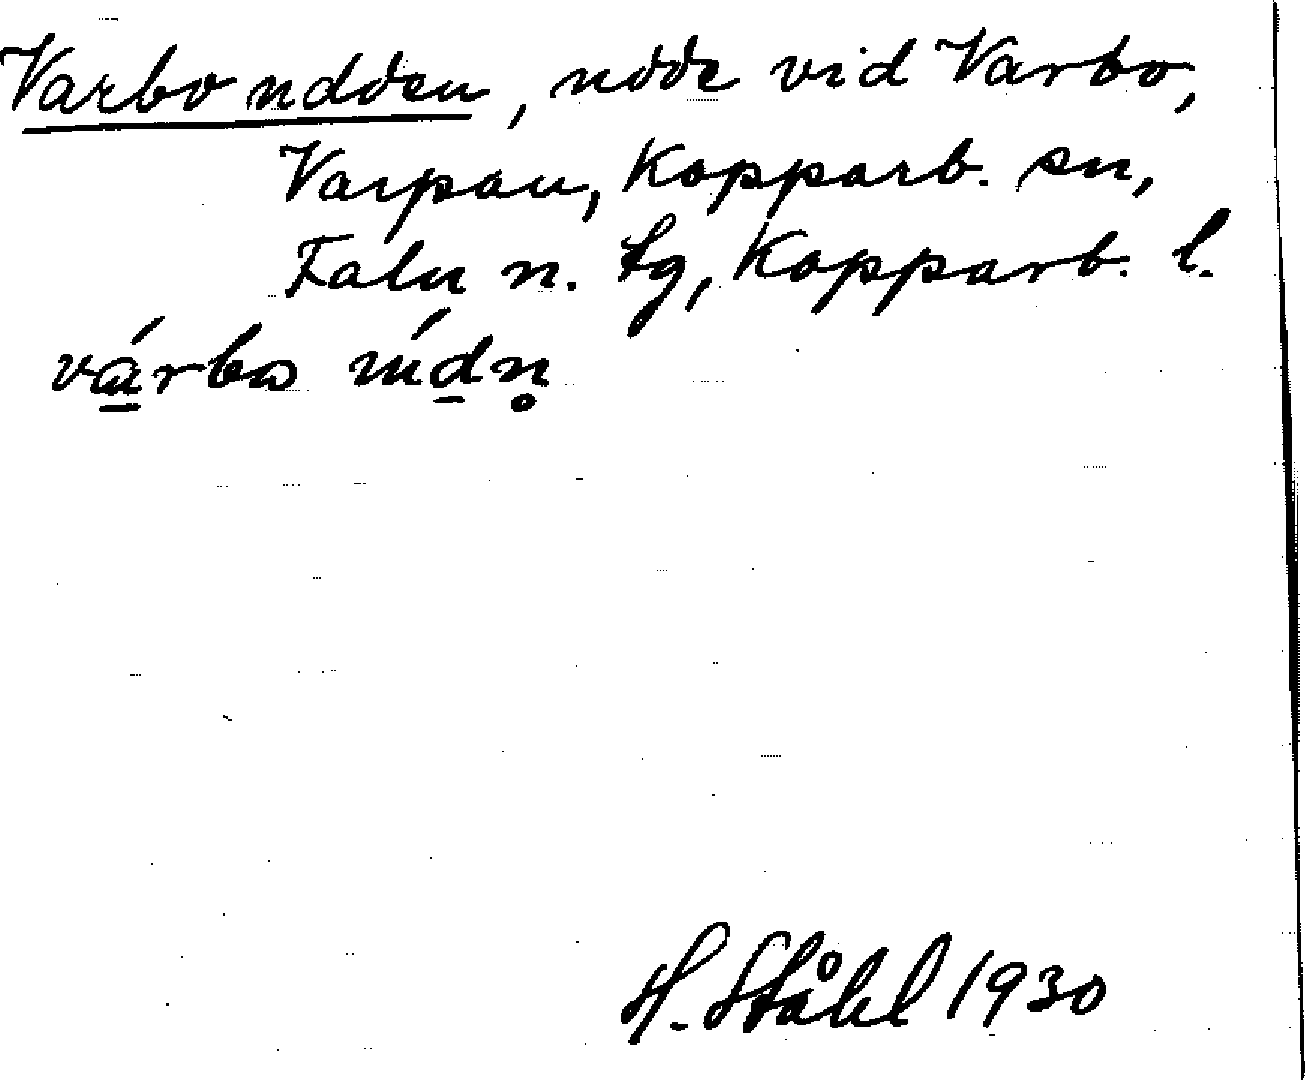 Varbo udden, udde vid Varbo,
Varpan, Kopparb. sn,
Falu n. tg, Kopparb. l.
várbo
H. Ståhl 1930